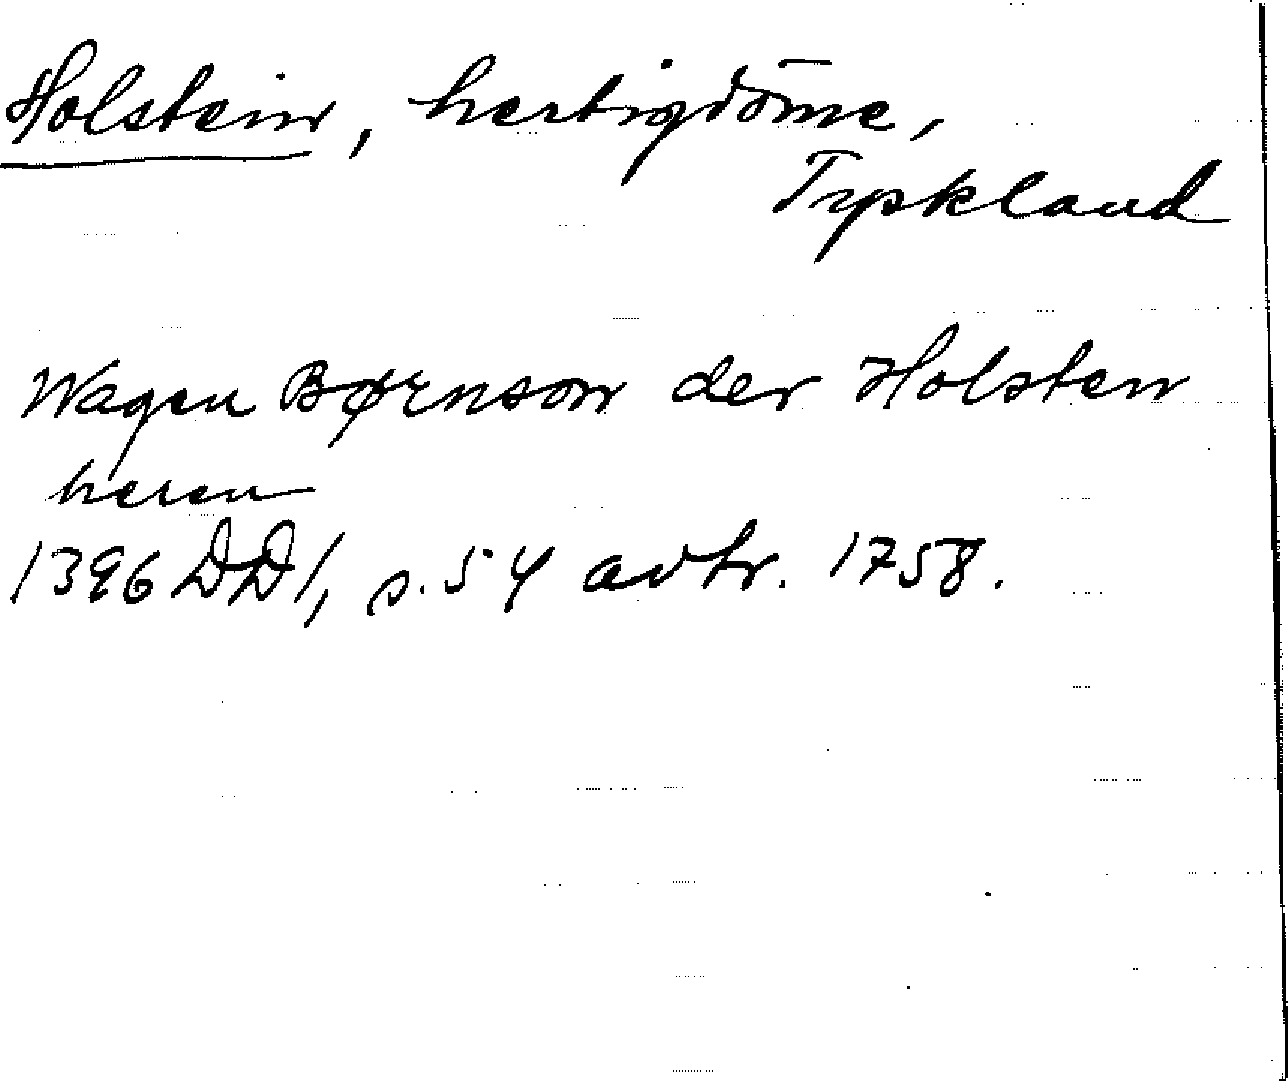 Holstein, hertigdöme,
Tyskland
Wagen Børnson der Holsten
heren
1396 DD1, s. 54 avtr. 1758.